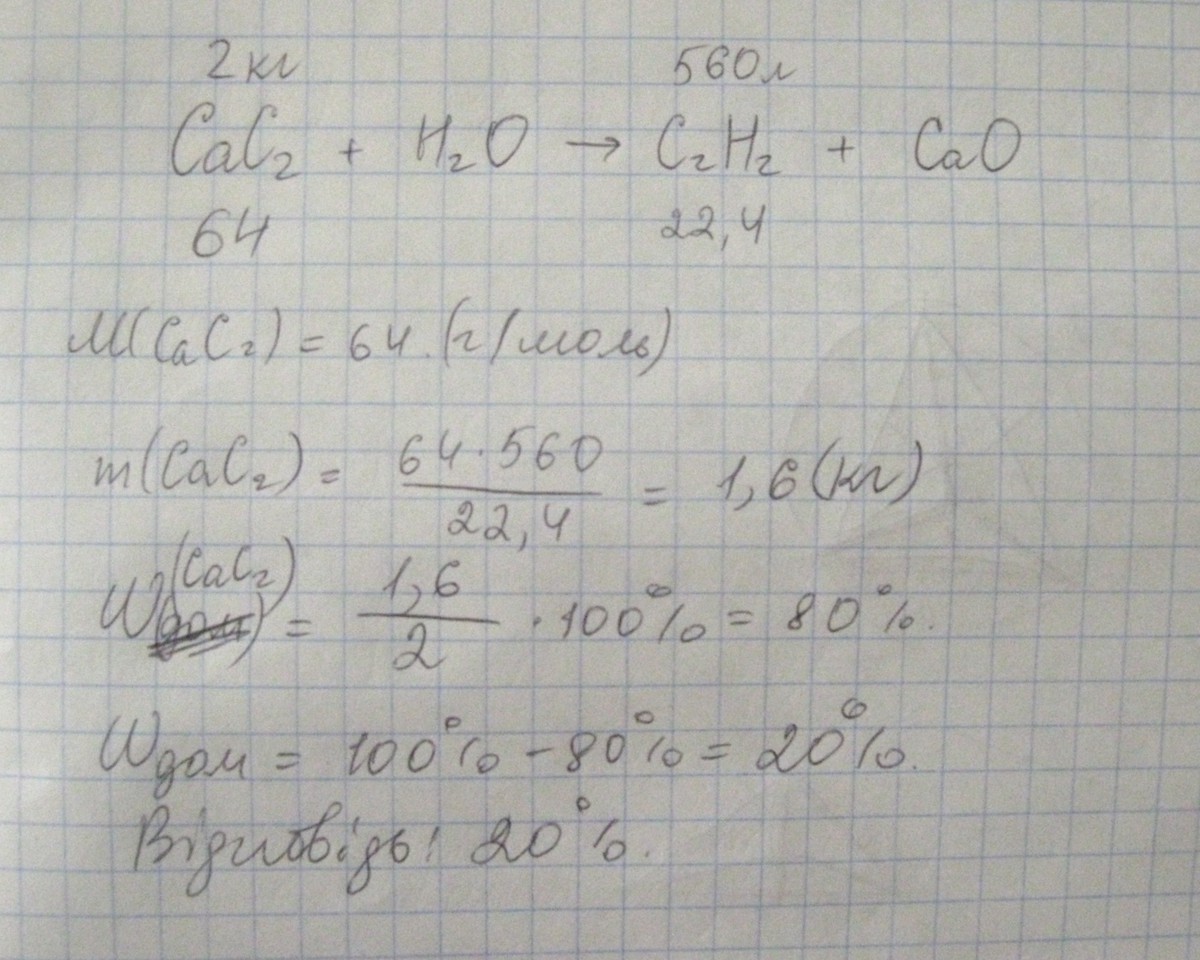 2кг 560л
CaC₂ + H₂O → C₂H₂ + CaO
64 22,4
M(CaC₂) = 64 (г/моль)
m(CaC₂) = 64·560 / 22,4 = 1,6 (кг)
W(CaC₂) = 1,6 / 2 · 100% = 80%.
Wдом = 100% - 80% = 20%.
Відповідь: 20%.